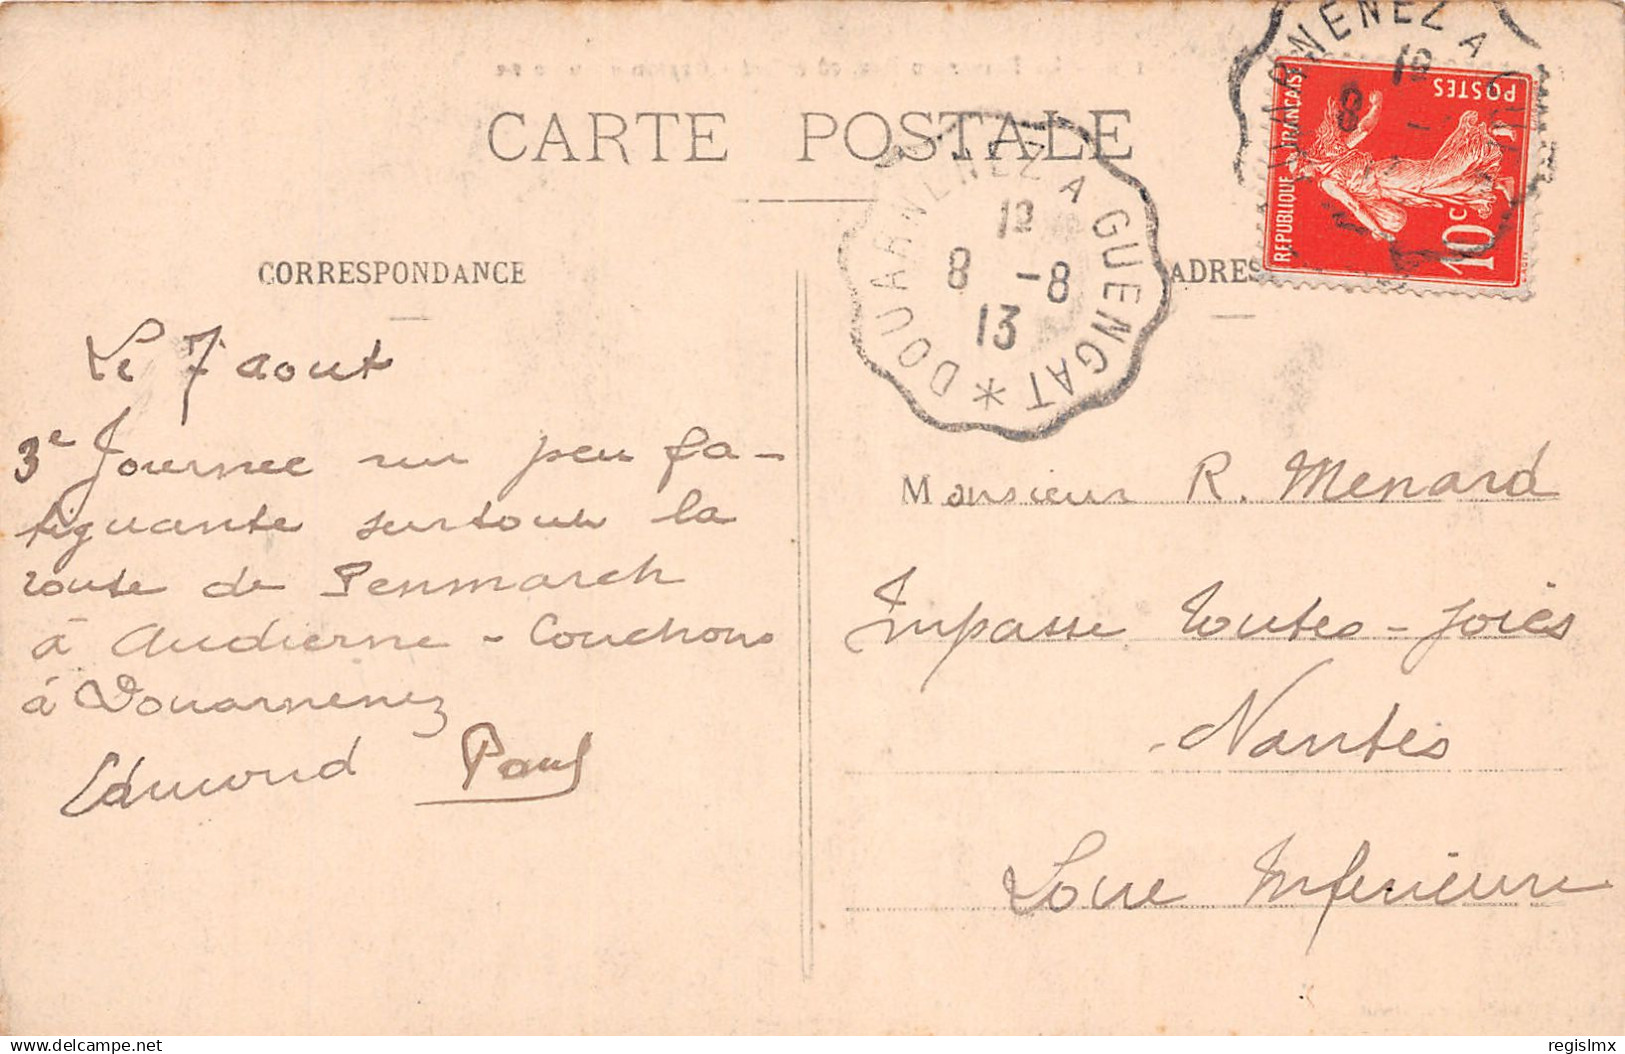 CARTE POSTALE
CORRESPONDANCE
Le 7 aout
3e Journee un peu fa-
tiguante surtout la
route de Penmarch
à Audierne - Couchons
à Douarnenez
Edmond Paul
DOUARNENEZ A GUENGAT *
12
8 -8
13
ADRES
REPUBLIQUE FRANÇAISE
POSTES
10c
ARNENEZ A GU
12
8
Monsieur R. Menard
Impasse Toutes-Joies
Nantes
Loire Inferieure
www.delcampe.net
regislmx